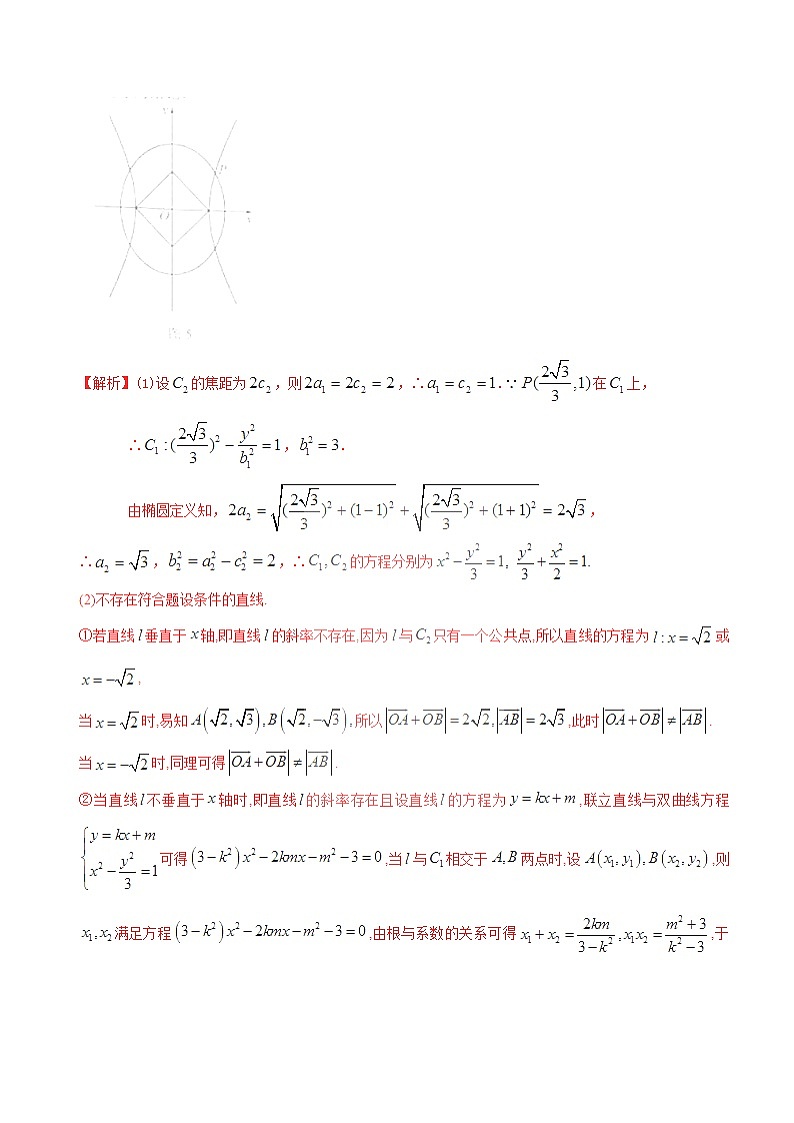 y
P
O
x
图 5
【解析】(1)设 $C_2$ 的焦距为 $2c_2$，则 $2a_1=2c_2=2$，∴ $a_1=c_2=1$.∵ $P(\frac{2\sqrt{3}}{3},1)$ 在 $C_1$ 上，
∴ $C_1:(\frac{2\sqrt{3}}{3})^2-\frac{y^2}{b_1^2}=1$，$b_1^2=3$.
由椭圆定义知，$2a_2=\sqrt{(\frac{2\sqrt{3}}{3})^2+(1-1)^2}+\sqrt{(\frac{2\sqrt{3}}{3})^2+(1+1)^2}=2\sqrt{3}$，
∴ $a_2=\sqrt{3}$，$b_2^2=a_2^2-c_2^2=2$，∴ $C_1,C_2$ 的方程分别为 $x^2-\frac{y^2}{3}=1$, $\frac{y^2}{3}+\frac{x^2}{2}=1$.
(2)不存在符合题设条件的直线.
①若直线 $l$ 垂直于 $x$ 轴,即直线 $l$ 的斜率不存在,因为 $l$ 与 $C_2$ 只有一个公共点,所以直线的方程为 $l:x=\sqrt{2}$ 或
$x=-\sqrt{2}$,
当 $x=\sqrt{2}$ 时,易知 $A(\sqrt{2},\sqrt{3}),B(\sqrt{2},-\sqrt{3})$,所以 $|\overline{OA}+\overline{OB}|=2\sqrt{2},|\overline{AB}|=2\sqrt{3}$,此时 $|\overline{OA}+\overline{OB}|\neq|\overline{AB}|$.
当 $x=-\sqrt{2}$ 时,同理可得 $|\overline{OA}+\overline{OB}|\neq|\overline{AB}|$.
②当直线 $l$ 不垂直于 $x$ 轴时,即直线 $l$ 的斜率存在且设直线 $l$ 的方程为 $y=kx+m$,联立直线与双曲线方程
$\begin{cases}y=kx+m\\x^2-\frac{y^2}{3}=1\end{cases}$ 可得 $(3-k^2)x^2-2kmx-m^2-3=0$,当 $l$ 与 $C_1$ 相交于 $A,B$ 两点时,设 $A(x_1,y_1),B(x_2,y_2)$,则
$x_1,x_2$ 满足方程 $(3-k^2)x^2-2kmx-m^2-3=0$,由根与系数的关系可得 $x_1+x_2=\frac{2km}{3-k^2},x_1x_2=\frac{m^2+3}{k^2-3}$,于